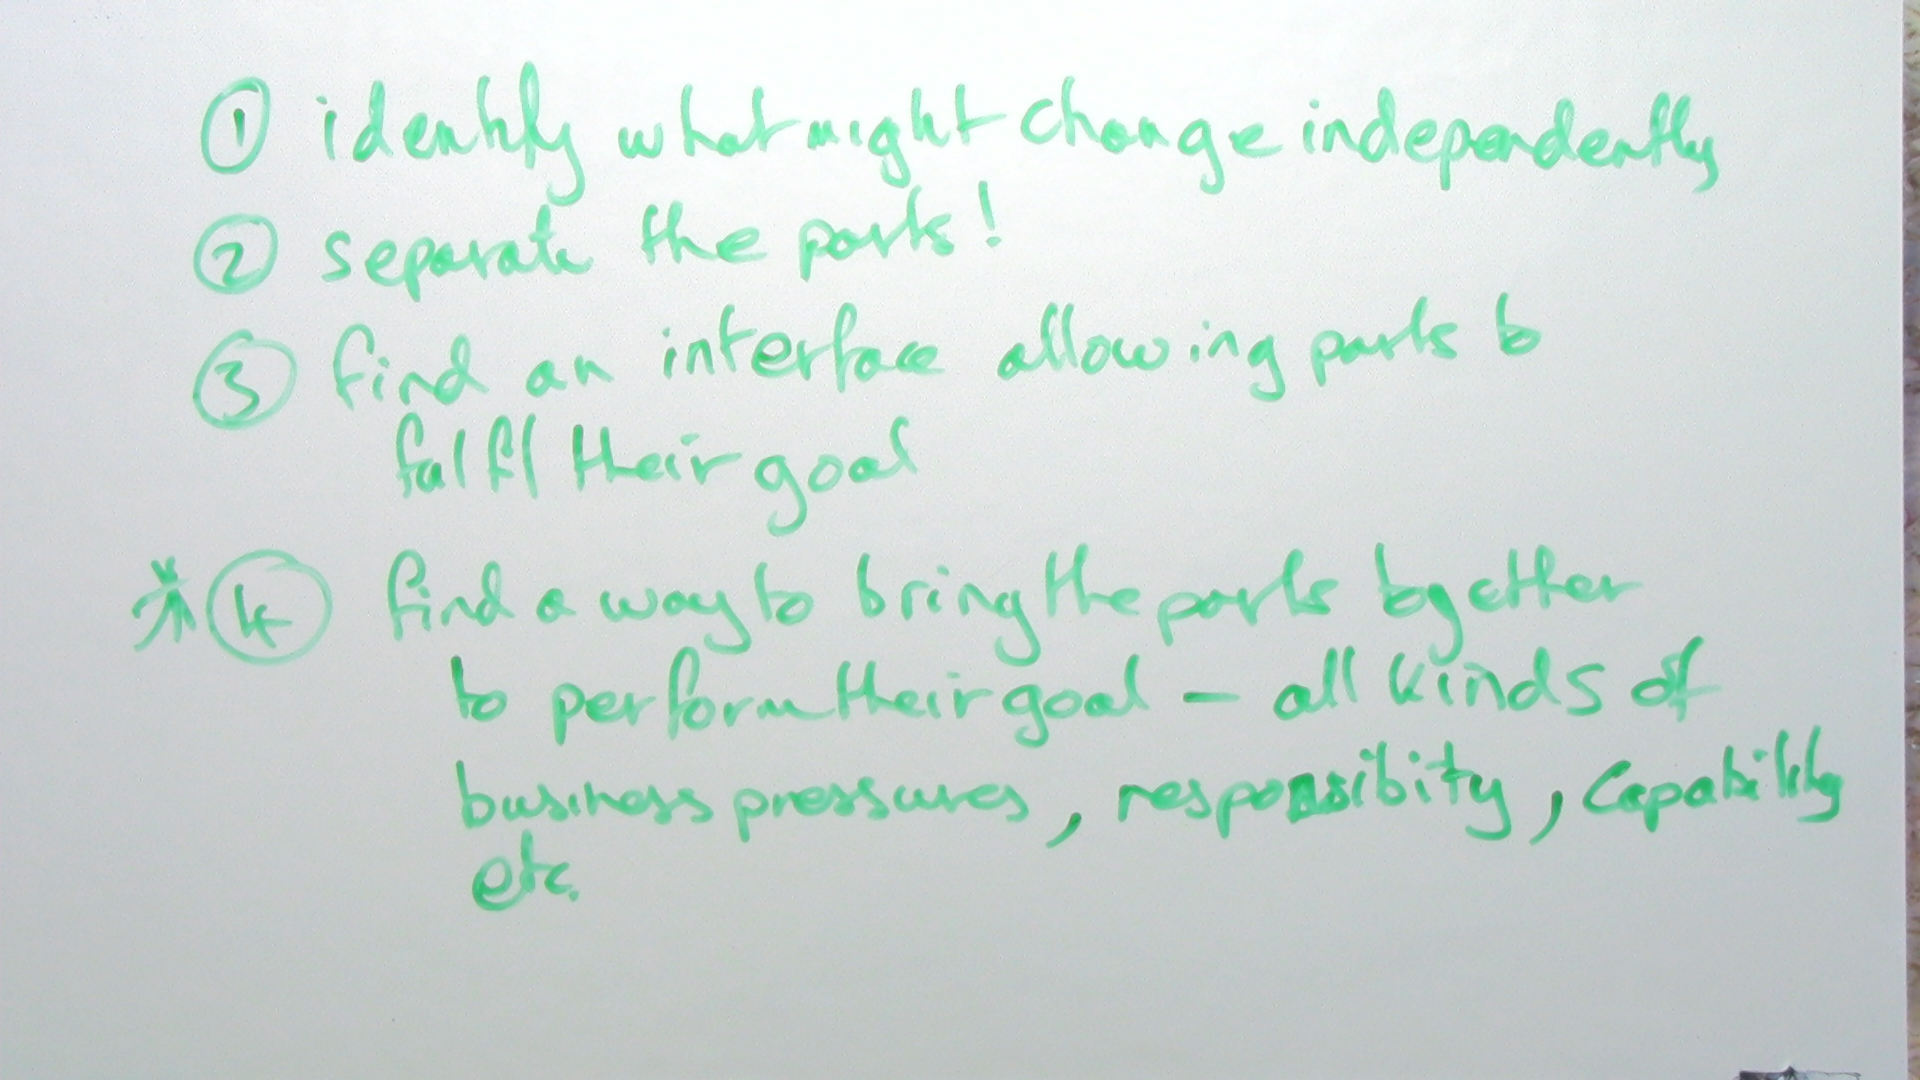 ① identify what might change independently
② separate the parts!
③ find an interface allowing parts to
fulfil their goal
* ④ find a way to bring the parts together
to perform their goal – all kinds of
business pressures, responsibity, capability
etc.